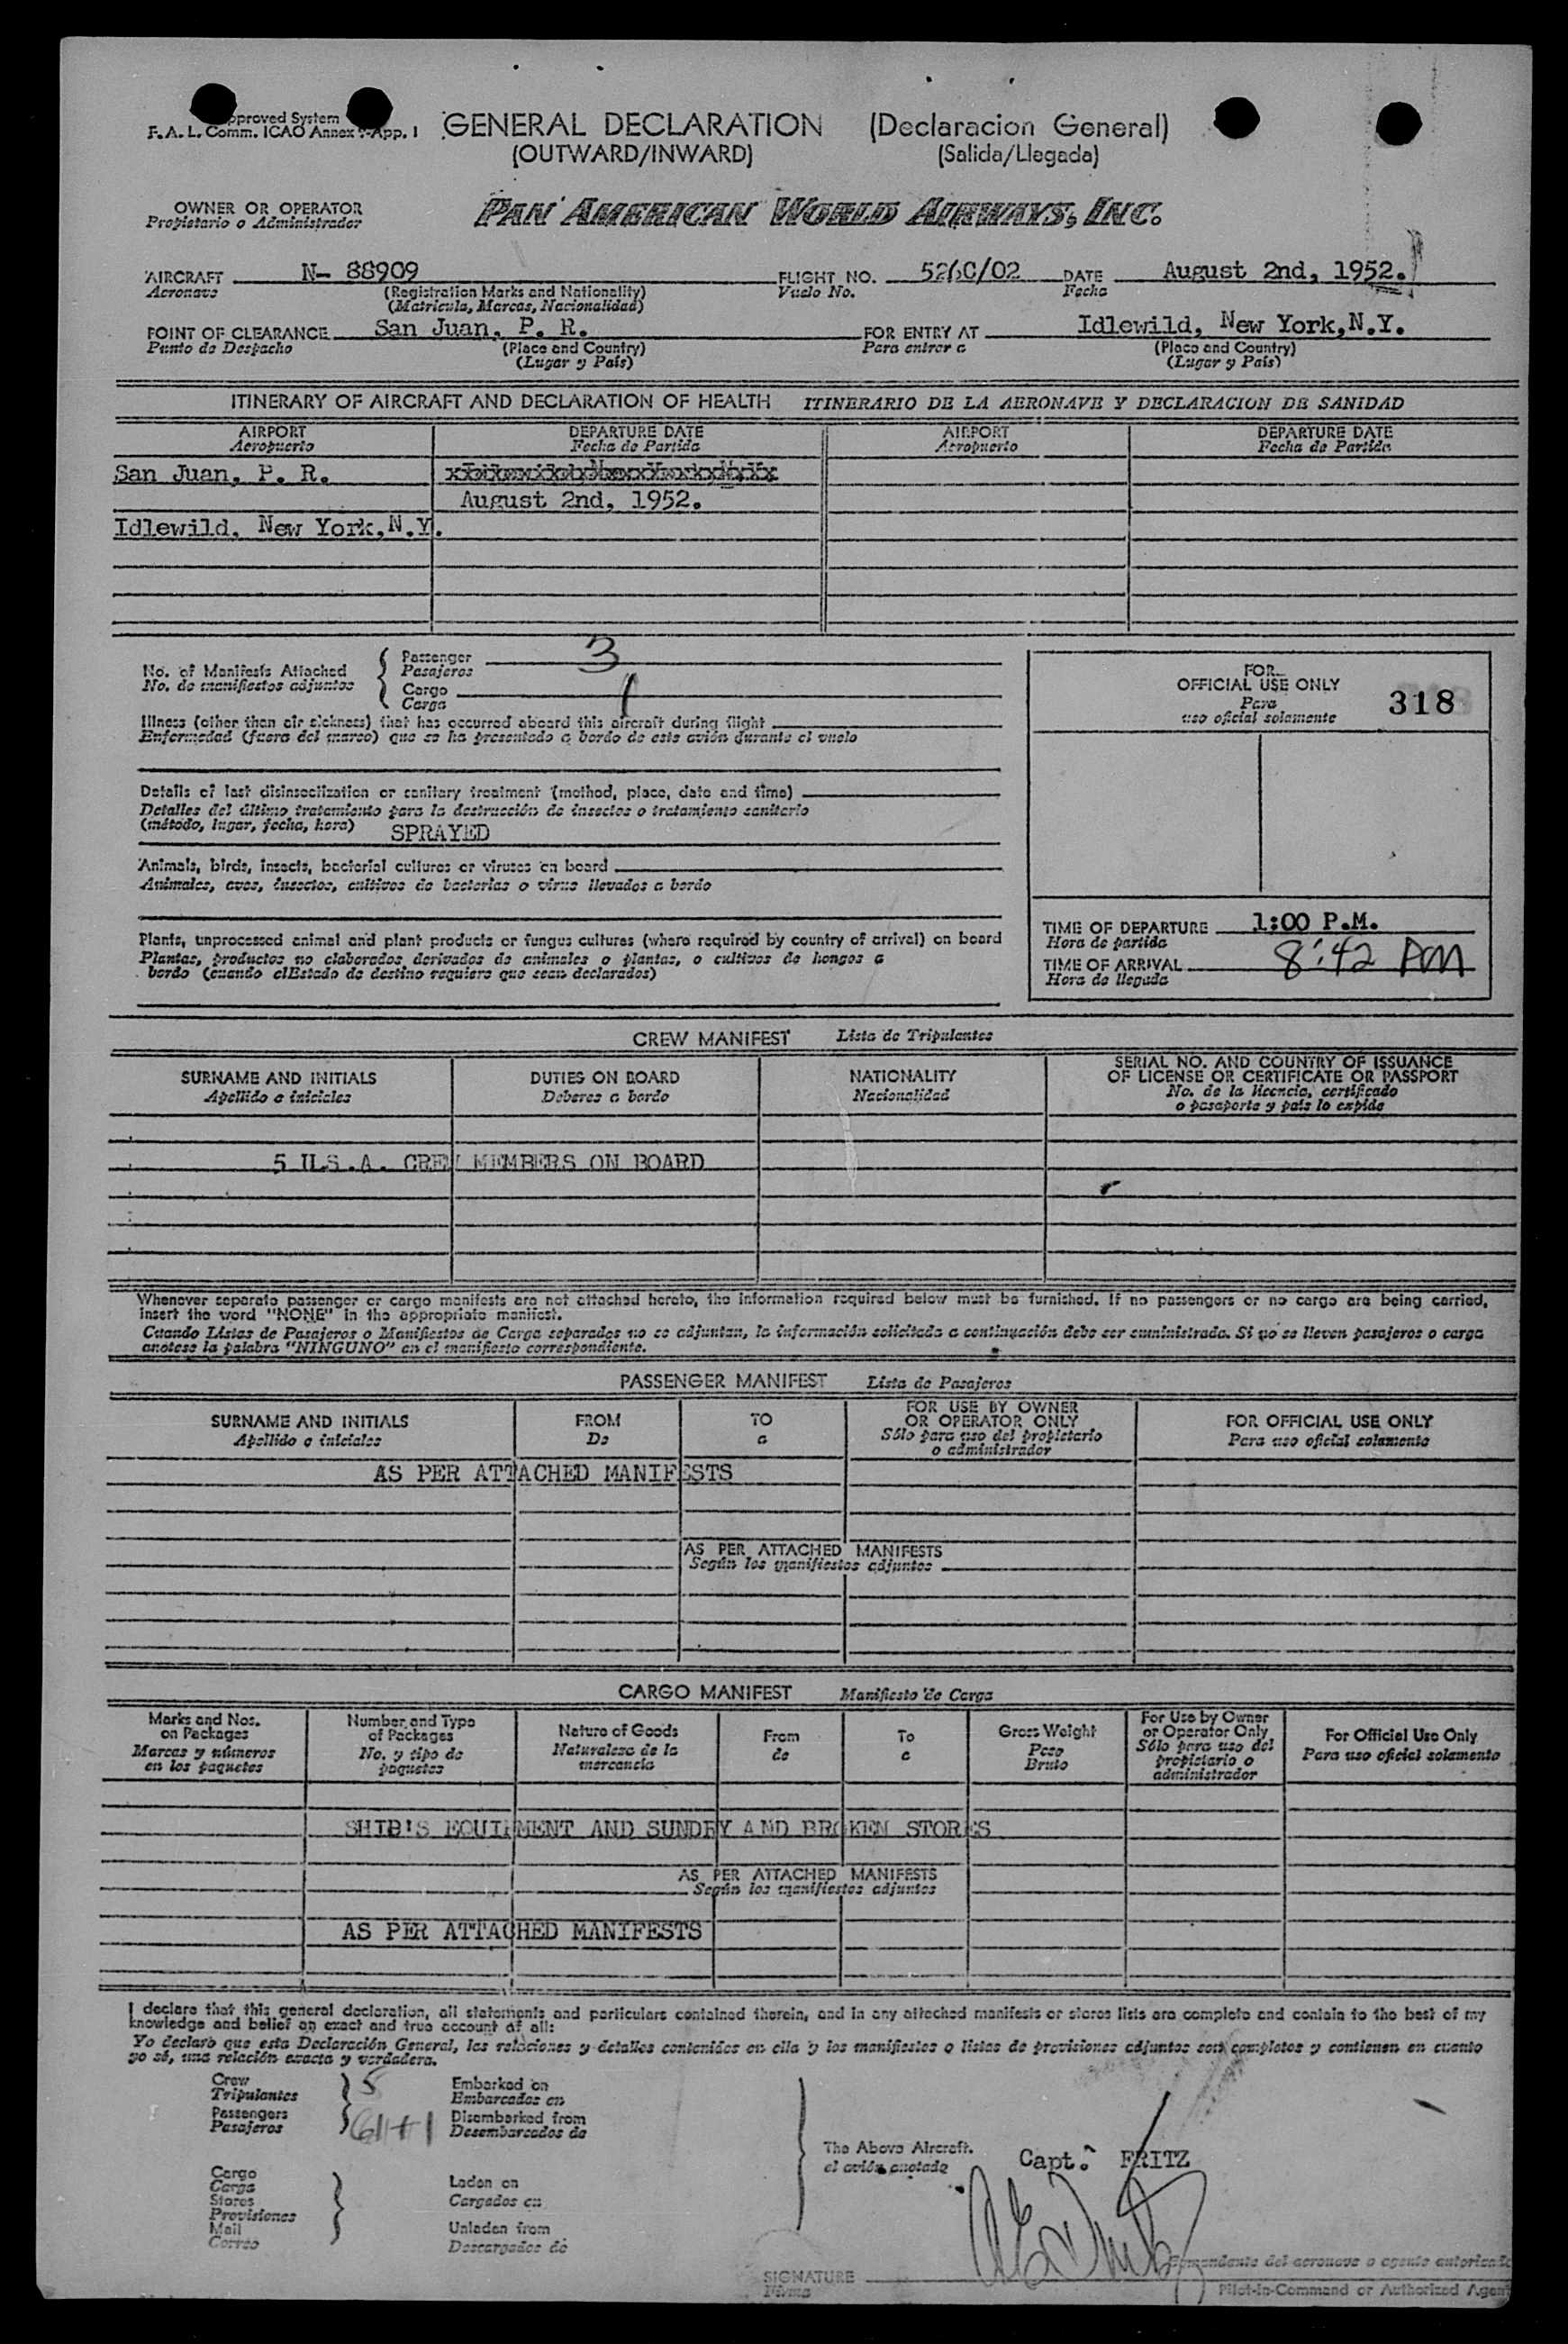 pproved System
F.A.L. Comm. ICAO Annex 9-App. I
GENERAL DECLARATION (Declaracion General)
(OUTWARD/INWARD) (Salida/Llegada)
OWNER OR OPERATOR
Propietario o Administrador
PAN AMERICAN WORLD AIRWAYS, INC.
AIRCRAFT N- 88909 FLIGHT NO. DATE August 2nd, 1952.
Aeronave (Registration Marks and Nationality) Vuelo No. Fecha
(Matricula, Marcas, Nacionalidad)
POINT OF CLEARANCE San Juan, P. R. FOR ENTRY AT Idlewild, New York,N.Y.
Punto de Despacho (Place and Country) Para entrar a (Place and Country)
(Lugar y País) (Lugar y País)
ITINERARY OF AIRCRAFT AND DECLARATION OF HEALTH ITINERARIO DE LA AERONAVE Y DECLARACION DE SANIDAD
AIRPORT DEPARTURE DATE AIRPORT DEPARTURE DATE
Aeropuerto Fecha de Partida Aeropuerto Fecha de Partida
San Juan, P. R.
August 2nd, 1952.
Idlewild, New York,N.Y.
No. of Manifests Attached
No. de manifiestos adjuntos
Passenger 3
Pasajeros
Cargo 1
Carga
Illness (other than air sickness) that has occurred aboard this aircraft during flight
Enfermedad (fuera del mareo) que se ha presentado a bordo de este avión durante el vuelo
Details of last disinsectization or sanitary treatment (method, place, date and time)
Detalles del último tratamiento para la destrucción de insectos o tratamiento sanitario
(método, lugar, fecha, hora) SPRAYED
Animals, birds, insects, bacterial cultures or viruses on board
Animales, aves, insectos, cultivos de bacterias o virus llevados a bordo
Plants, unprocessed animal and plant products or fungus cultures (where required by country of arrival) on board
Plantas, productos no elaborados derivados de animales o plantas, o cultivos de hongos a
bordo (cuando elEstado de destino requiere que sean declarados)
FOR
OFFICIAL USE ONLY 318
Para
uso oficial solamente
TIME OF DEPARTURE 1:00 P.M.
Hora de partida
TIME OF ARRIVAL 8:42 PM
Hora de llegada
CREW MANIFEST Lista de Tripulantes
SURNAME AND INITIALS DUTIES ON BOARD NATIONALITY SERIAL NO. AND COUNTRY OF ISSUANCE
OF LICENSE OR CERTIFICATE OR PASSPORT
Apellido e iniciales Deberes a bordo Nacionalidad No. de la licencia, certificado
o pasaporte y país lo expide
5 U.S.A. CREW MEMBERS ON BOARD
Whenever separate passenger or cargo manifests are not attached hereto, the information required below must be furnished. If no passengers or no cargo are being carried,
insert the word "NONE" in the appropriate manifest.
Cuando Listas de Pasajeros o Manifiestos de Carga separados no se adjuntan, la información solicitada a continuación debe ser suministrada. Si no se lleven pasajeros o carga
anotese la palabra "NINGUNO" en el manifiesto correspondiente.
PASSENGER MANIFEST Lista de Pasajeros
SURNAME AND INITIALS FROM TO FOR USE BY OWNER
OR OPERATOR ONLY FOR OFFICIAL USE ONLY
Apellido e iniciales De a Sólo para uso del propietario
o administrador Para uso oficial solamente
AS PER ATTACHED MANIFESTS
AS PER ATTACHED MANIFESTS
Según los manifiestos adjuntos
CARGO MANIFEST Manifiesto de Carga
Marks and Nos.
on Packages
Marcas y números
en los paquetes
Number and Type
of Packages
No. y tipo de
paquetes
Nature of Goods
Naturaleza de la
mercancía
From
de
To
a
Gross Weight
Peso
Bruto
For Use by Owner
or Operator Only
Sólo para uso del
propietario o
administrador
For Official Use Only
Para uso oficial solamente
SHIP'S EQUIPMENT AND SUNDRY AND BROKEN STORES
AS PER ATTACHED MANIFESTS
Según los manifiestos adjuntos
AS PER ATTACHED MANIFESTS
I declare that this general declaration, all statements and particulars contained therein, and in any attached manifests or stores lists are complete and contain to the best of my
knowledge and belief an exact and true account of all:
Yo declaro que esta Declaración General, las relaciones y detalles contenidos en ella y los manifiestos o listas de provisiones adjuntos son completos y contienen en cuanto
yo sé, una relación exacta y verdadera.
Crew 5
Tripulantes
Passengers 61+1
Pasajeros
Embarked on
Embarcados en
Disembarked from
Desembarcados de
Cargo
Carga
Stores
Provisiones
Mail
Correo
Laden on
Cargados en
Unladen from
Descargados de
The Above Aircraft.
el avión anotado
Capt. FRITZ
Comandante del aeronave o agente autorizado
SIGNATURE
Firma
Pilot-in-Command or Authorized Agent